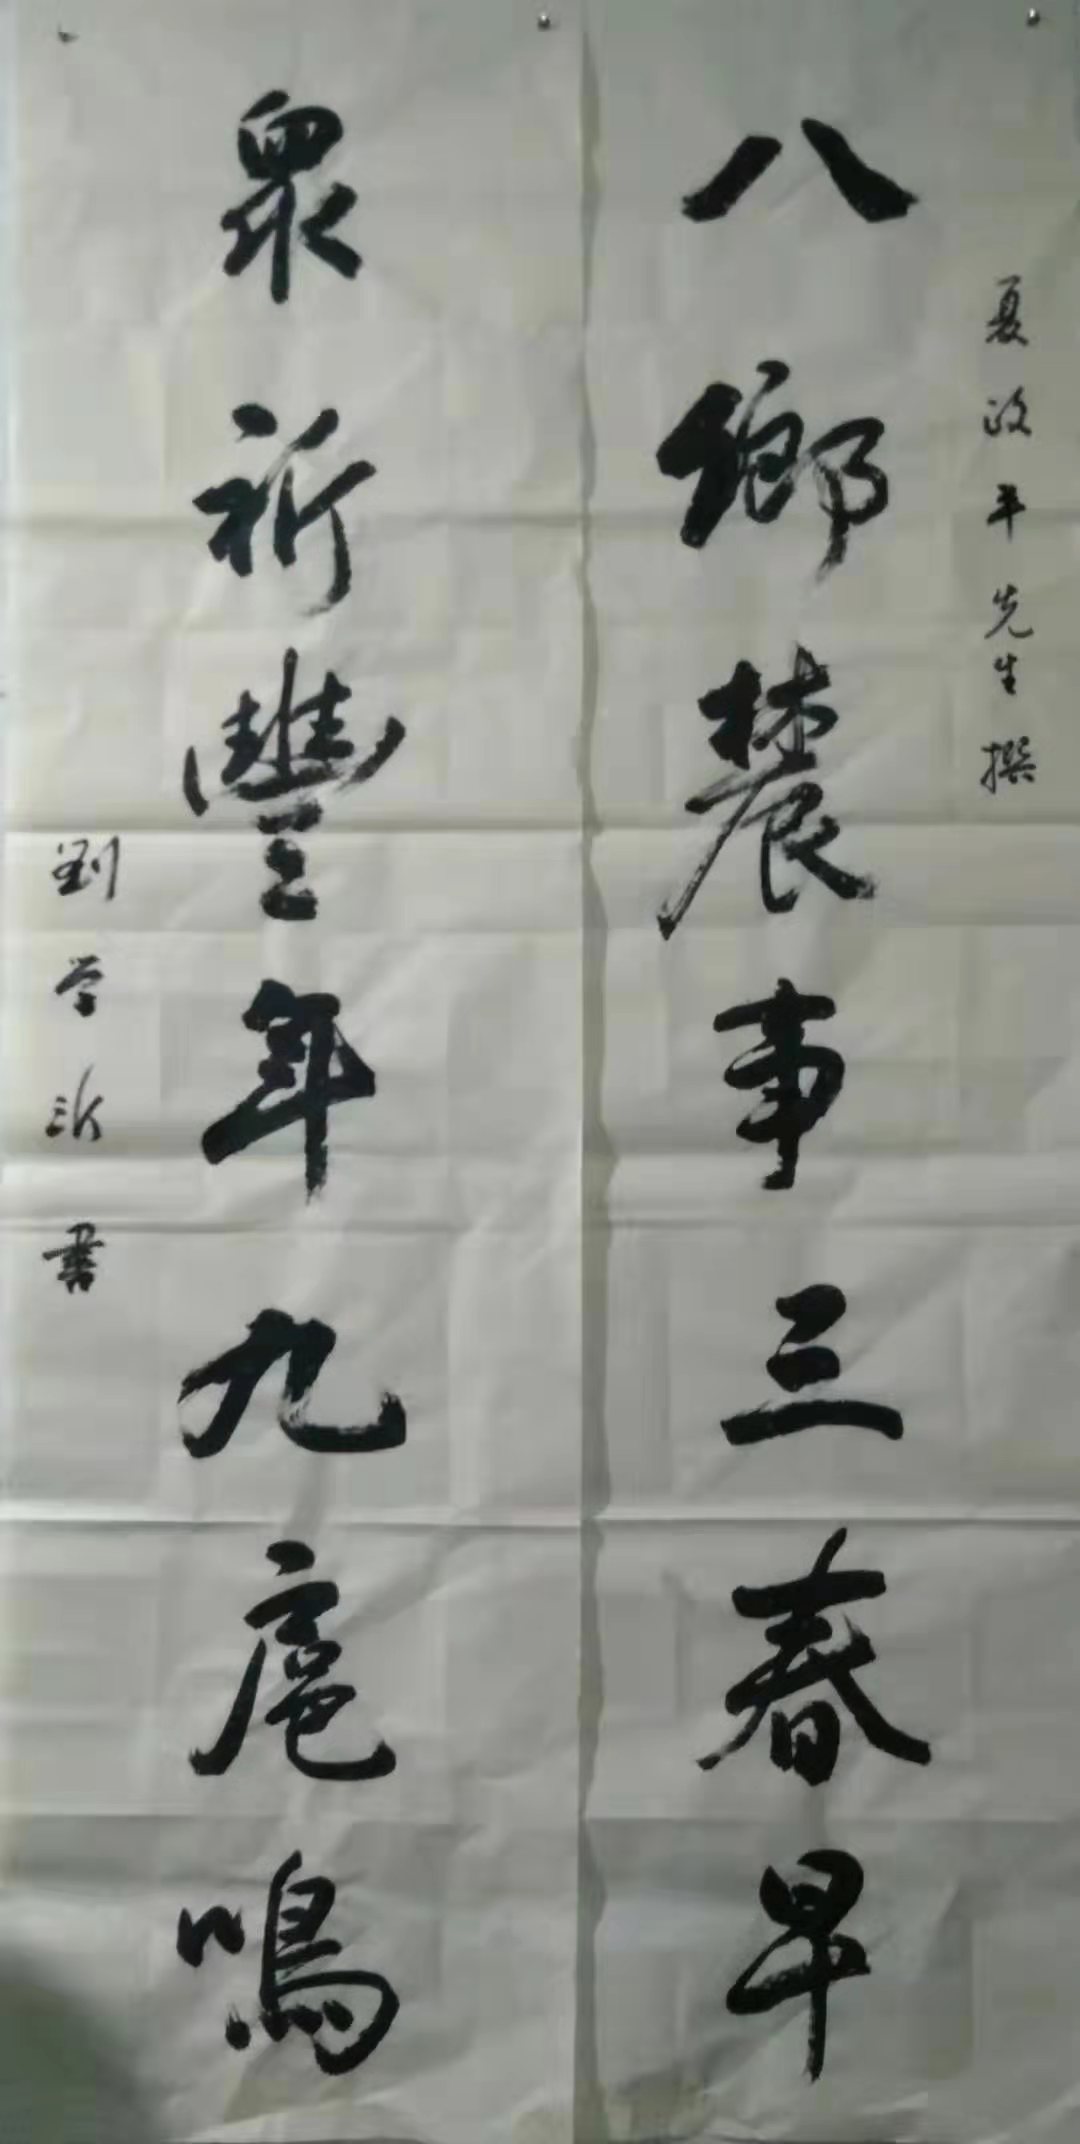 夏政平先生撰
八鄉農事三春早
眾祈豐年九扈鳴
劉学沂書